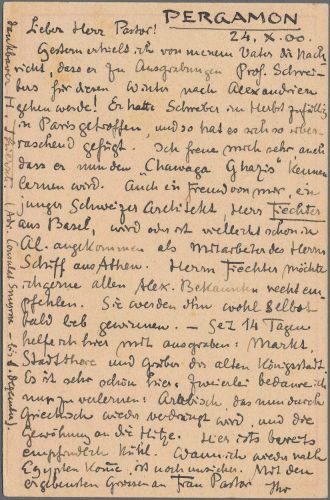 PERGAMON
24. X. 00.
Lieber Herr Pastor!
Gestern erhielt ich von meinem Vater die Nach-
richt, dass er zu Ausgrabungen Prof. Schrei-
bers für diesen Winter nach Alexandrien
gehen werde! Er hatte Schreiber im Herbst zufällig
in Paris getroffen, und so hat es sich so über-
raschend gefügt. Ich freue mich sehr auch
dass er nun den "Chawaga Ghazis" kennen
lernen wird. Auch ein Freund von mir, ein
junger Schweizer Architekt, Herr Fiechter
aus Basel, wird oder ist vielleicht schon in
Al. angekommen als Mitarbeiter des Herrn
Schiff aus Athen. Herrn Fiechter möchte
ich gerne allen Alex. Bekannten recht em-
pfehlen. Sie werden ihn wohl selbst
bald lieb gewinnen. – Seit 14 Tagen
helfe ich hier mit ausgraben: Markt,
Stadtthore und Gräber der alten Königsstadt.
Es ist sehr schön hier; zweierlei bedaure ich
nur zu verlernen: Arabisch das nun durch
Griechisch wieder verdrängt wird, und die
Gewöhnung an die Hitze. Hier ists bereits
empfindlich kühl. Wann ich wieder nach
Egypten komme, ist noch unsicher. Mit den
ergebensten Grüssen an Frau Pastor Ihr
dankbarer H. Thiersch (Adr. Consulat Smyrna – bis 1. Dezember).